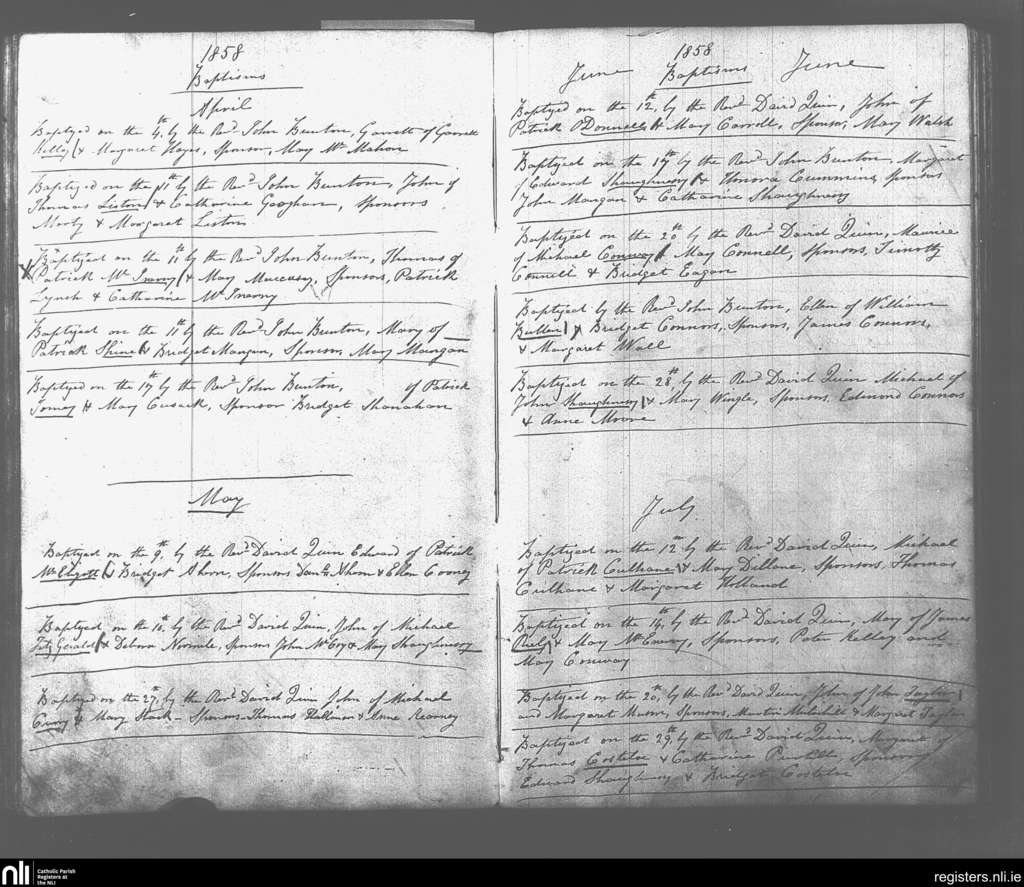 1858
Baptisms
April
Baptyzed on the 4th, by the Revd John Bunton, Garrett of Garrett
Kelley & Margaret Hayes, Sponsor, May Mc Mahon
Baptyzed on the 11th by the Revd John Bunton, John of
Thomas Liston & Catharine Geoghan, Sponsors
Morty & Margaret Liston
Baptyzed on the 11th by the Revd John Bunton, Thomas of
Patrick Mc Inerny & May, Sponsors, Patrick
Lynch & Catharine Mc Inerny
Baptyzed on the 11th by the Revd John Bunton, Mary of
Patrick Shine & Bridget Mangan, Sponsor, May Mangan
Baptyzed on the 17th by the Revd John Bunton, of Patrick
& May Cusack, Sponsor Bridget Shanahan
May
Baptyzed on the 9th, by the Revd David Quin Edward of Patrick
Mc Eligott & Bridget Ahern, Sponsors Danl Ahern & Ellen Cooney
Baptyzed on the 10th, by the Revd David Quin, John of Michael
Fitz Gerald & Debora Normile, Sponsors John Mc Coy & May Shaughnessy
Baptyzed on the 27th, by the Revd David Quin John of Michael
& Mary Stack - Sponsors Thomas & Anne Kearney
1858
June Baptisms June
Baptyzed on the 12th, by the Revd David Quin, John of
Patrick O'Donnell & May Carroll, Sponsor, May Walsh
Baptyzed on the 17th by the Revd John Bunton, Margaret
of Edward Shaughnessy & Honora Cummins, Sponsors
John Mangan & Catharine Shaughnessy
Baptyzed on the 20th by the Revd David Quin, Maurice
of Michael Conway & May Connell, Sponsors, Timothy
Connell & Bridget Eagan
Baptyzed by the Revd John Bunton, Ellen of William
& Bridget Connors, Sponsors, James Connors,
& Margaret Wall
Baptyzed on the 28th, by the Revd David Quin Michael of
John Shaughnessy & May Wingle, Sponsors, Edmond Connors
& Anne Moore
July
Baptyzed on the 12th by the Revd David Quin, Michael
of Patrick Culhane & May Dillane, Sponsors, Thomas
Culhane & Margaret Holland
Baptyzed on the 14th, by the Revd David Quin, May of James
& May Mc Eniry, Sponsors, Peter Kelley and
May Conway
Baptyzed on the 20th, by the Revd David Quin, John of John
and Margaret, Sponsors, Martin & Margaret
Baptyzed on the 29th, by the Revd David Quin, Margaret of
Thomas Costeloe & Catharine Purtill, Sponsors
Edward Shaughnessy & Bridget Costeloe
nli
Catholic Parish
Registers at
the NLI
registers.nli.ie